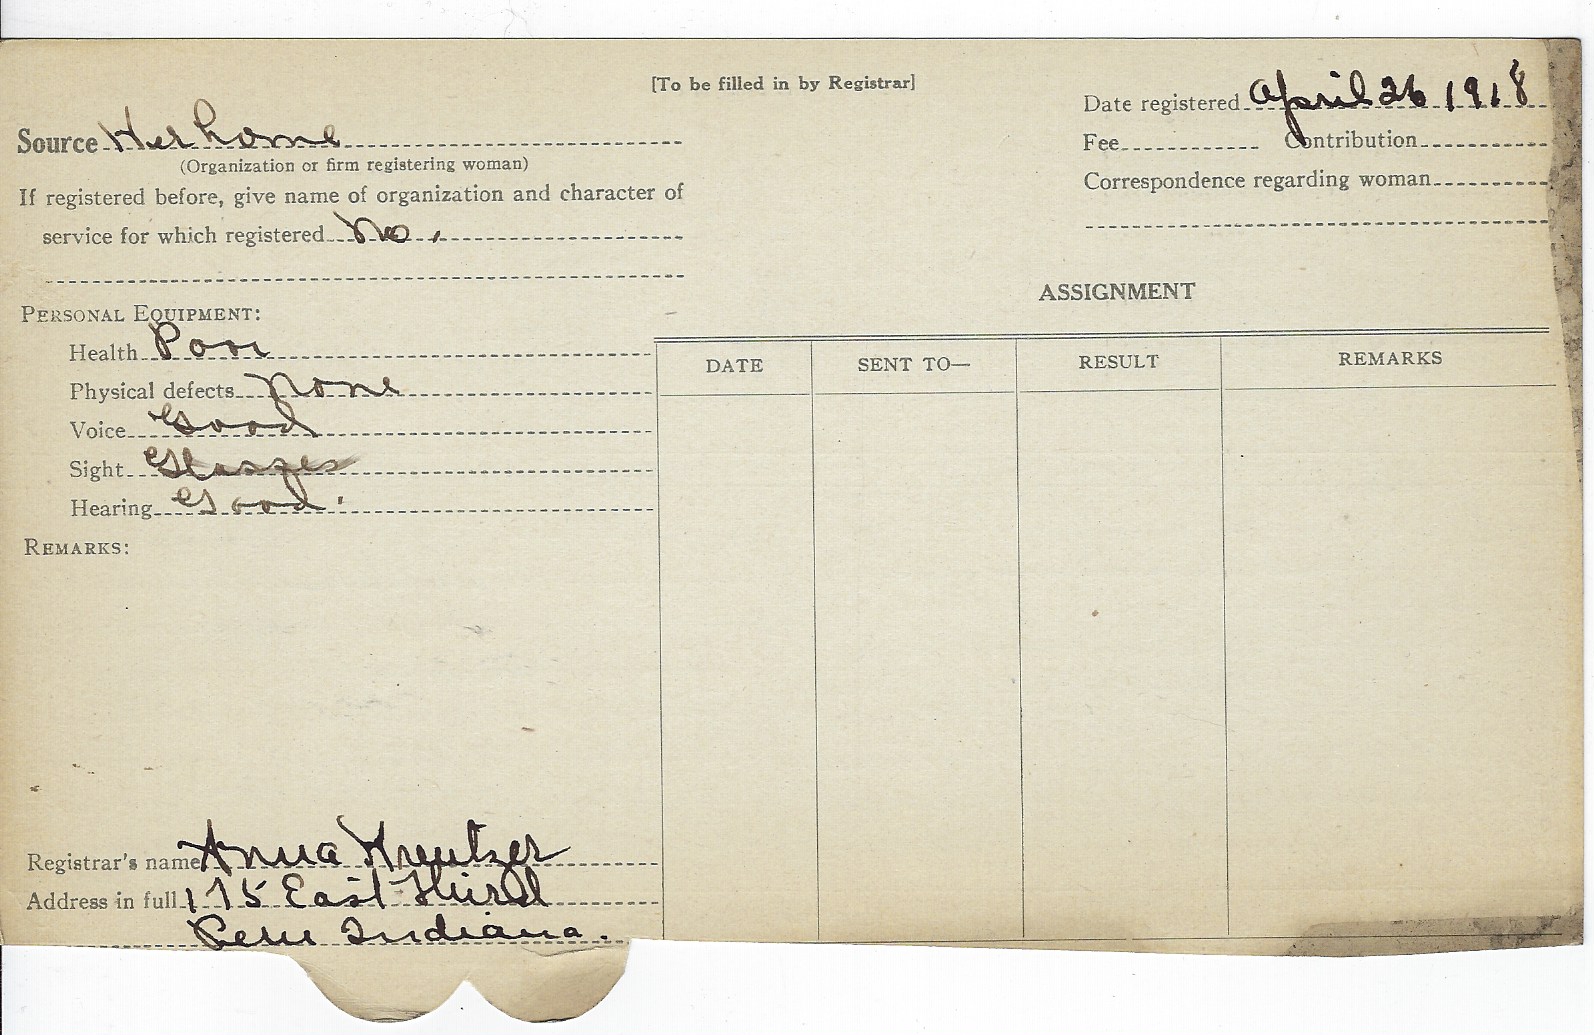 [To be filled in by Registrar]
Date registered April 26 1918
Source Her home
(Organization or firm registering woman)
Fee Contribution
If registered before, give name of organization and character of
service for which registered No.
Correspondence regarding woman
PERSONAL EQUIPMENT:
Health Poor
Physical defects None
Voice Good
Sight Glasses
Hearing Good.
REMARKS:
Registrar's name Anna Kreutzer
Address in full 175 East Third
Peru Indiana.
ASSIGNMENT
DATE SENT TO— RESULT REMARKS